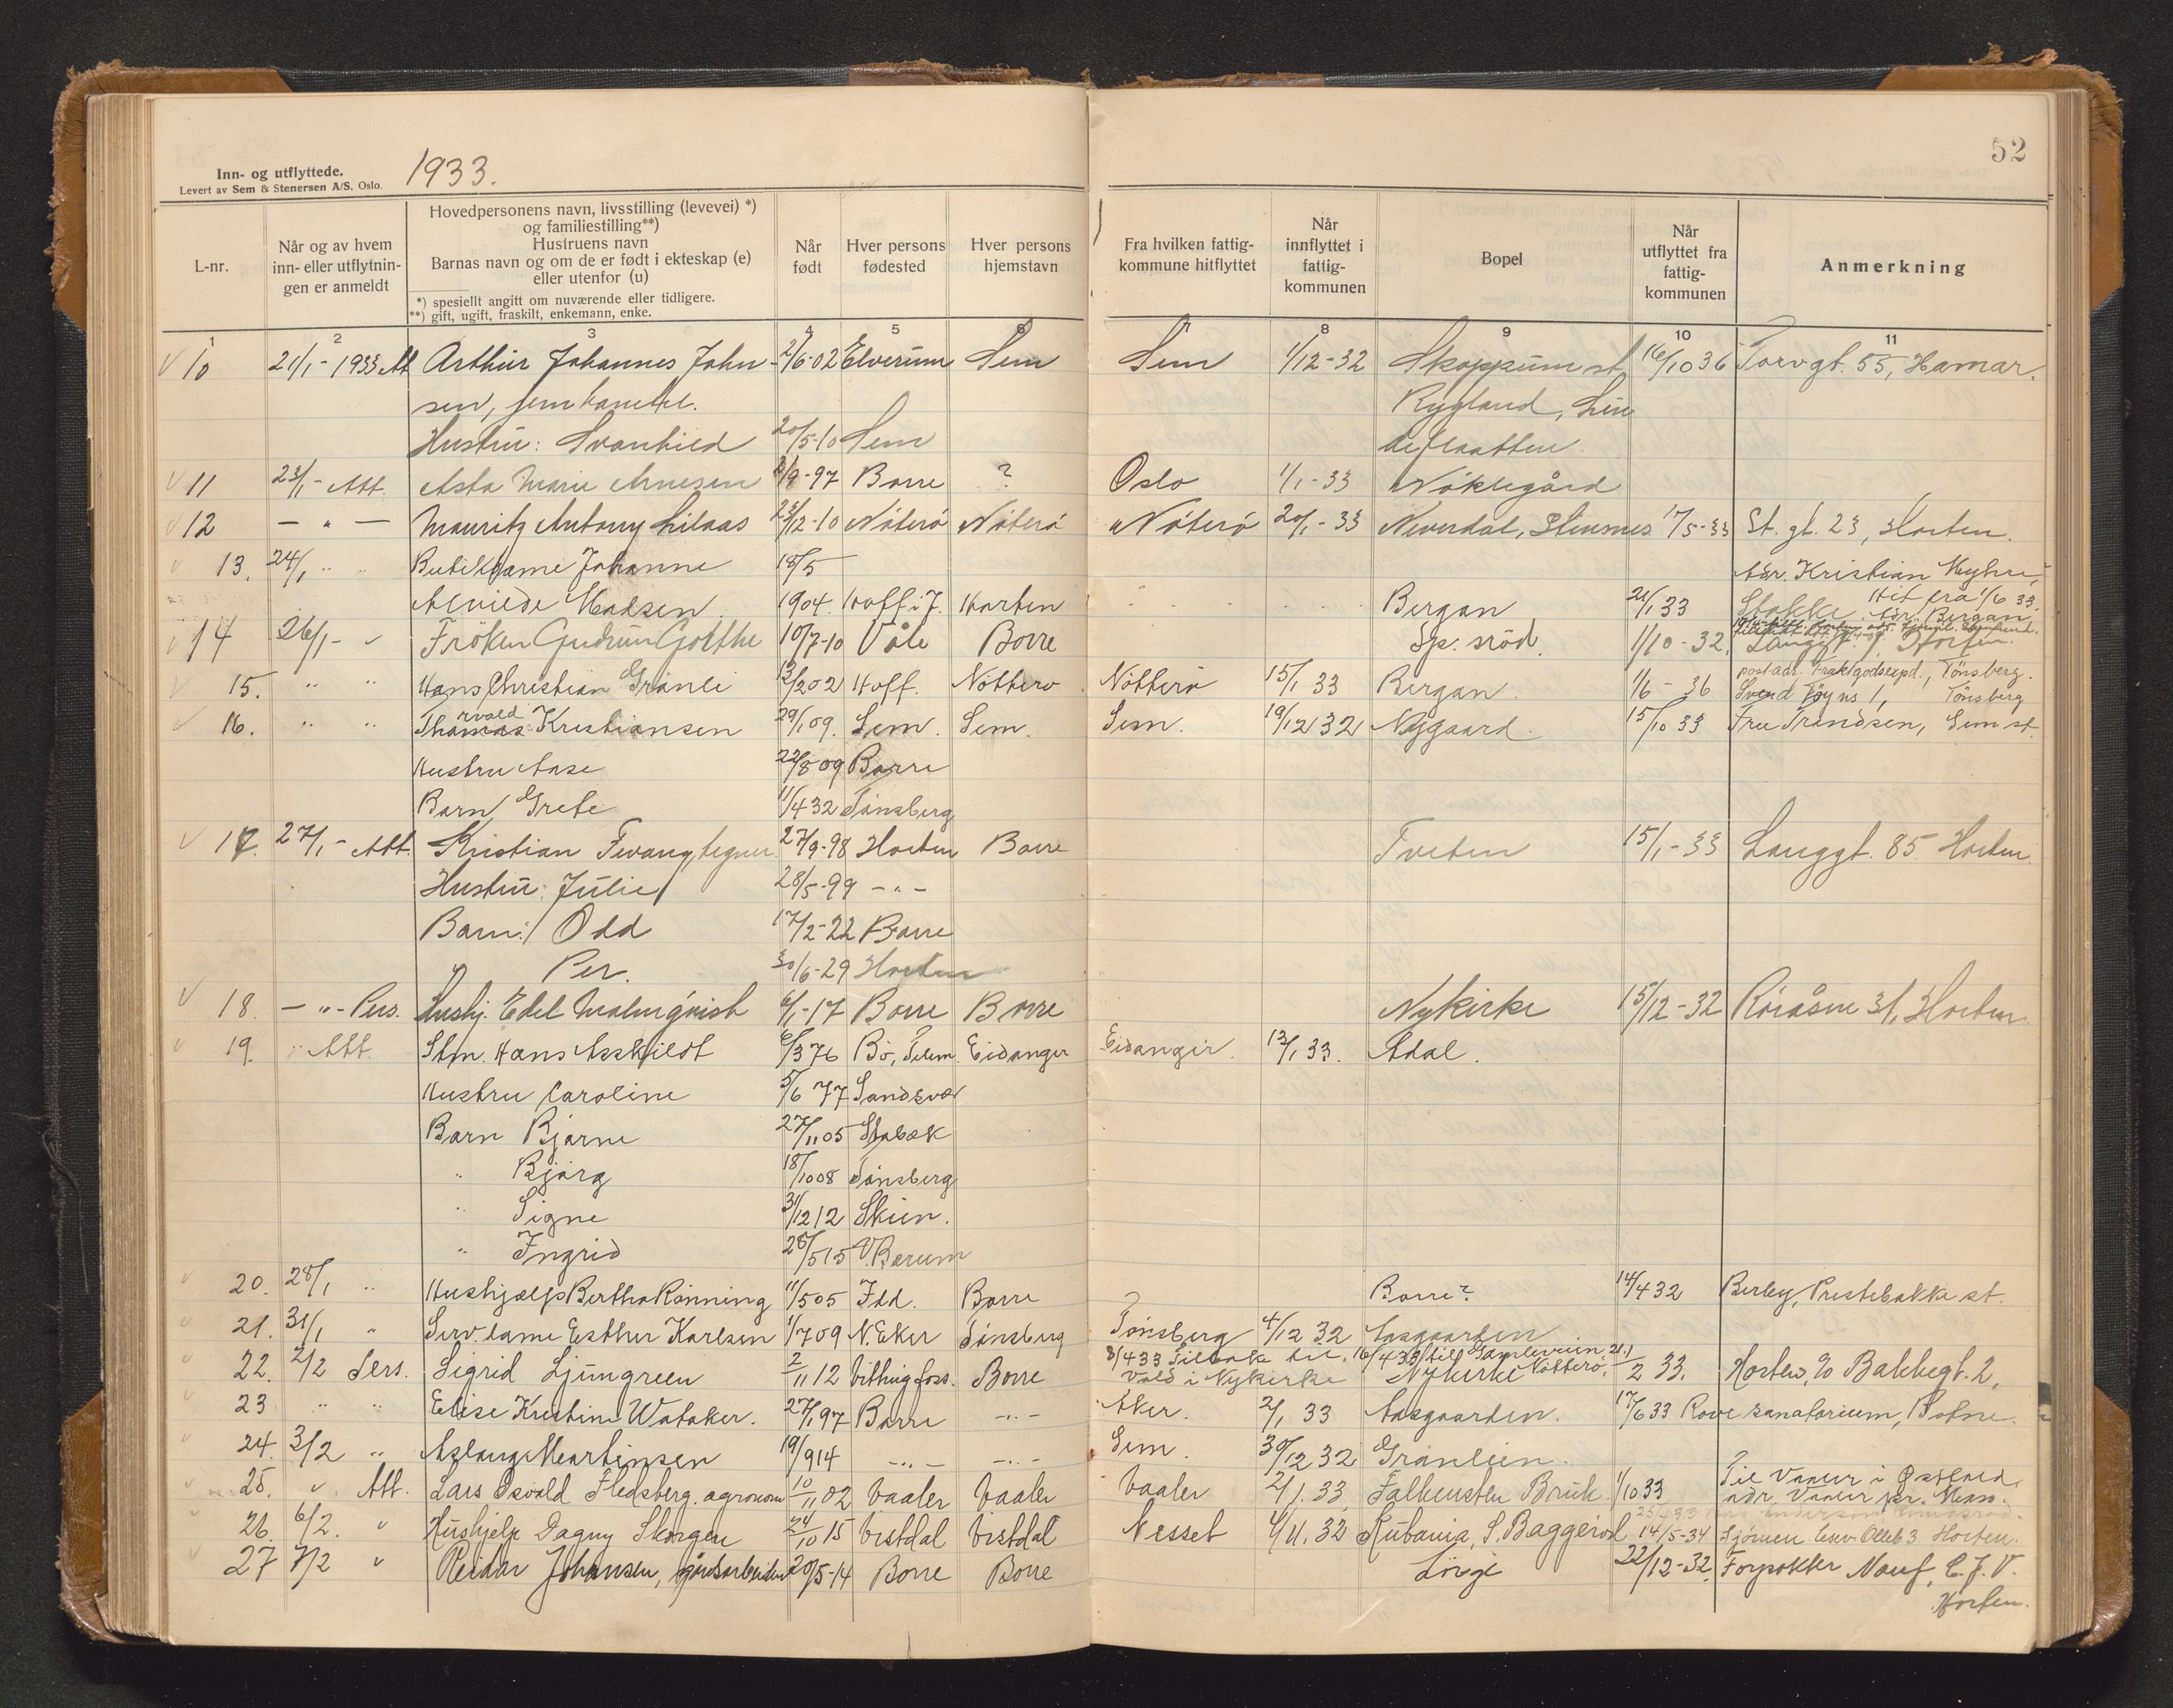 52
Inn- og utflyttede.
Levert av Sem & Stenersen A/S, Oslo.
1933.
L-nr.
Når og av hvem inn- eller utflytnin-gen er anmeldt
Hovedpersonens navn, livsstilling (levevei) *)
og familiestilling**)
Hustruens navn
Barnas navn og om de er født i ekteskap (e)
eller utenfor (u)
*) spesiellt angitt om nuværende eller tidligere.
**) gift, ugift, fraskilt, enkemann, enke.
Når født
Hver persons fødested
Hver persons hjemstavn
Fra hvilken fattig-kommune hitflyttet
Når innflyttet i fattig-kommunen
Bopel
Når utflyttet fra fattig-kommunen
Anmerkning
1 2 3 4 5 6 7 8 9 10 11
10 21/1-1933 Att Arthur Johannes John- 2/6-02 Elverum Sem Sem 1/12-32 Skoppum st 16/10 36 Torvgt. 55, Hamar.
sen, Rygland, Lin
Hustru: Svanhild 20/5-10 Sem
11 23/1- Att. Asta Marie Arnesen -97 Borre ? Oslo 1/1-33 Nöklegård
12 - " - Mauritz Antony Lilaas 23/12-10 Nöterö Nöterö Nöterö 20/1-33 Neverdal, Stensnes 17/5-33 St. gt. 23, Horten.
13. 24/1 " " Butikdame Johanne 18/5 Adr. Kristian Myhre,
Alvilde Madsen 1904. Hoff i J. Horten Bergan 21/1 33 Stokke. Hit fra 1/6 33. Adr. Bergan
14 26/1- " Fröken Gudrun Goethe 10/7-10 Våle Borre Sp. sröd. 1/10-32. Langgt. Horten.
15. " " Hans Christian Granli 3/2 02 Hoff. Nötterö Nötterö 15/1 33 Bergan. 1/6-36 postadr. Fraktgodsexpd., Tönsberg.
Svend Föyns 1, Tönsberg
16. " " Thomas rvald Kristiansen 29/1 09. Sem. Sem. Sem. 19/12 32 Nygaard. 15/10 33 Fru Trondsen, Sem st.
Hustru Aase 22/8 09 Borre
Barn Grete 11/4 32 Tönsberg
17. 27/1- Att. Kristian Tvang, tegner. 27/9-98 Horten Borre Tveten 15/1-33 Langgt. 85. Horten
Hustru: Julie 28/5-99 - " -
Barn: Odd 17/2-22 Borre
" Per. 30/6-29 Horten
18. - " - Pers. Hushj. Edel Malmqvist 6/1-17 Borre Borre Nykirke 15/12-32 Röråsen 31, Horten
19. " Att. Stm. Hans Asskildt 6/3 76 Bö, Telem. Eidanger Eidanger. 13/1 33. Adal.
Hustru Caroline 5/6 77 Sandsvær
Barn Bjarne 27/11 05 Stabæk
" Bjarg 18/10 08 Tönsberg
" Signe 31/12 12 Skien.
" Ingrid 28/5 15 V. Bærum
20. 28/1 " Hushjælp Bertha Rönning 11/5 05 Idd. Borre Borre? 14/4 32 Berby, Prestebakke st.
21. 31/1 " Serv.dame Esther Karlsen 1/7 09 N. Eker Tönsberg Tönsberg 4/12 32 Aasgaarden
8/4 33 Tilbake til 16/4 33 till Gamleveien 21.1
22. 2/2 Pers. Sigrid Ljungreen 2/11 12 Vittingfoss. Borre Vold i Nykirke Nykirke Nötterö. 2 33. Horten, % Bakkegt. 2,
23 " " Elise Kristine Wataker. 27/1 97 Borre - " - Aker. 2/1 33 Aasgaarden. 17/6 33 Rove sanatorium, Botne.
24. 3/2 " Aslaug Martinsen 19/9 14 - " - - " - Sem. 30/12 32 Granlien.
25. " Att. Lars Osvald Fledsberg. agronom 10/11 02 Vaaler Vaaler Vaaler 2/1. 33. Falkensten Bruk 1/10 33 Til Vaaler i Østfold
adr. Vaaler pr. Moss.
26. 6/2. " Hushjelp Dagny Skorgen 24/10 15 Vistdal Vistdal Nesset 4/11. 32 Kubania, S. Baggeröd 14/5-34 3 Horten.
27 7/2 " Reidar Johansen, gårdsarbeider 20/5-14 Borre Borre Lövgi 22/12-32. Forpokker Nauf, C. J. V.
Horten.